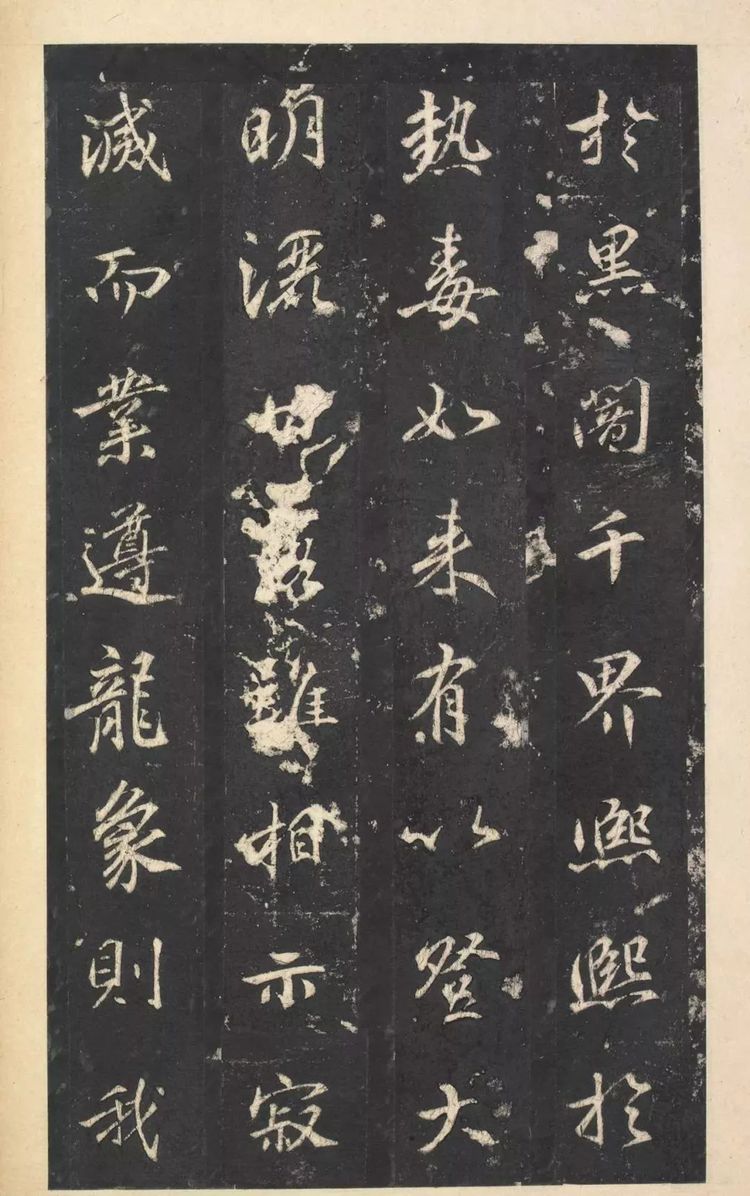 於黑闇千界熙熙於
熱毒如来有以登大
明洒甘露雖相示寂
滅而業遵龍象則我